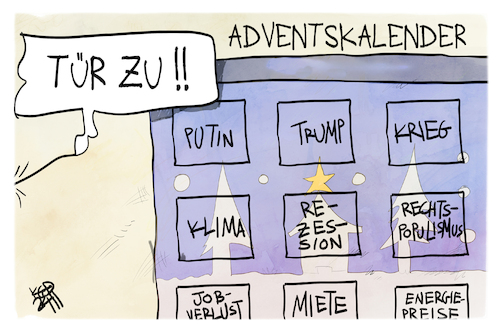 ADVENTSKALENDER
TÜR ZU!!
PUTIN
TRUMP
KRIEG
KLIMA
RE-
ZES-
SION
RECHTS-
POPULISMUS
JOB-
VERLUST
MIETE
ENERGIE-
PREISE